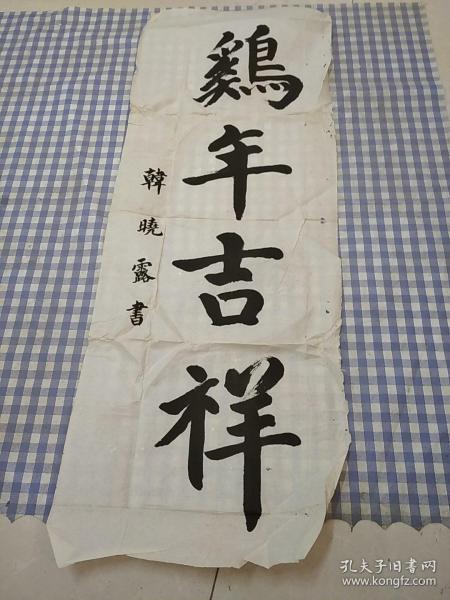 鷄年吉祥
韓曉露書
孔夫子旧书网
www.kongfz.com